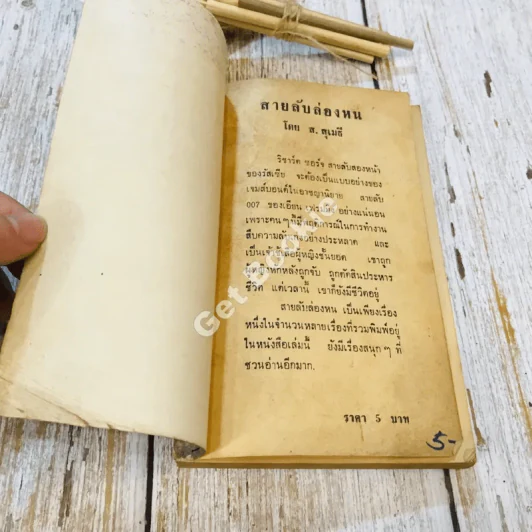 สายลับล่องหน
โดย ส. สุเมธี
ริชาร์ด ซอร์จ สายลับสองหน้า
ของรัสเซีย จะต้องเป็นแบบอย่างของ
เจมส์บอนด์ในอาชญานิยาย สายลับ
007 ของเอียน เฟรมมิ่ง อย่างแน่นอน
เพราะคน ๆ นี้มีพฤติการณ์ในการทำงาน
สืบความลับ อย่างประหลาด และ
เป็นเจ้าชู้เสือผู้หญิงชั้นยอด เขาถูก
ผู้หญิงหักหลังถูกจับ ถูกตัดสินประหาร
ชีวิต แต่เวลานี้ เขาก็ยังมีชีวิตอยู่
สายลับล่องหน เป็นเพียงเรื่อง
หนึ่งในจำนวนหลายเรื่องที่รวมพิมพ์อยู่
ในหนังสือเล่มนี้ ยังมีเรื่องสนุก ๆ ที่
ชวนอ่านอีกมาก.
ราคา 5 บาท
5-
Get Bookie